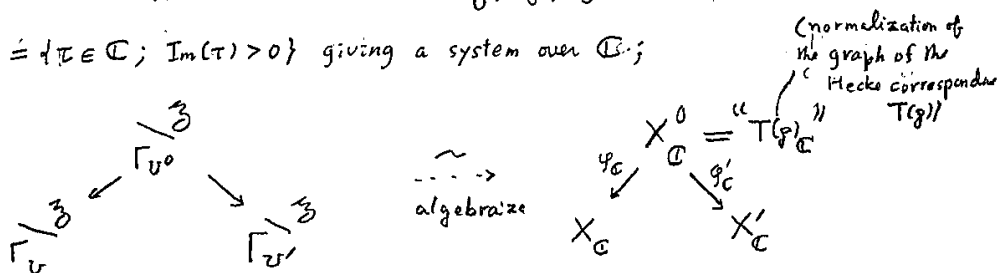 = {τ ∈ ℂ ; Im(τ) > 0} giving a system over ℂ ;
(normalization of
the graph of the
Hecke correspondence
T(g))
Γ_{U⁰}\𝔥
Γ_U\𝔥
Γ_{U'}\𝔥
~
algebraize
X⁰_ℂ = "T(g)_ℂ"
φ_ℂ φ'_ℂ
X_ℂ X'_ℂ